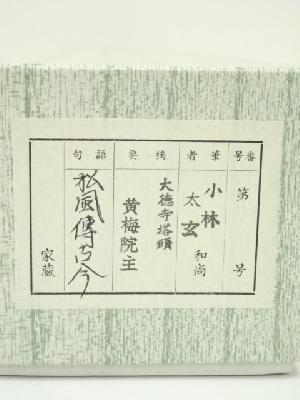 番号
第 号
筆者
小林太玄和尚
摘要
大徳寺塔頭
黄梅院主
語句
松風傳古今
家蔵